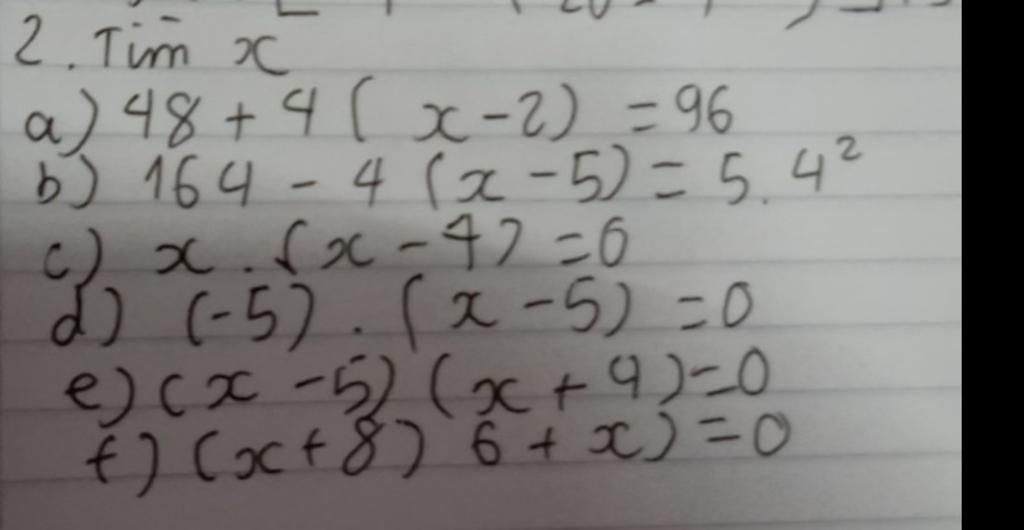 2. Tìm x
a) 48 + 4 ( x - 2) = 96
b) 164 - 4 (x - 5) = 5. 4²
c) x . (x - 4) = 0
d) (-5) . (x - 5) = 0
e) (x - 5) (x + 9) = 0
f) (x + 8) 6 + x) = 0